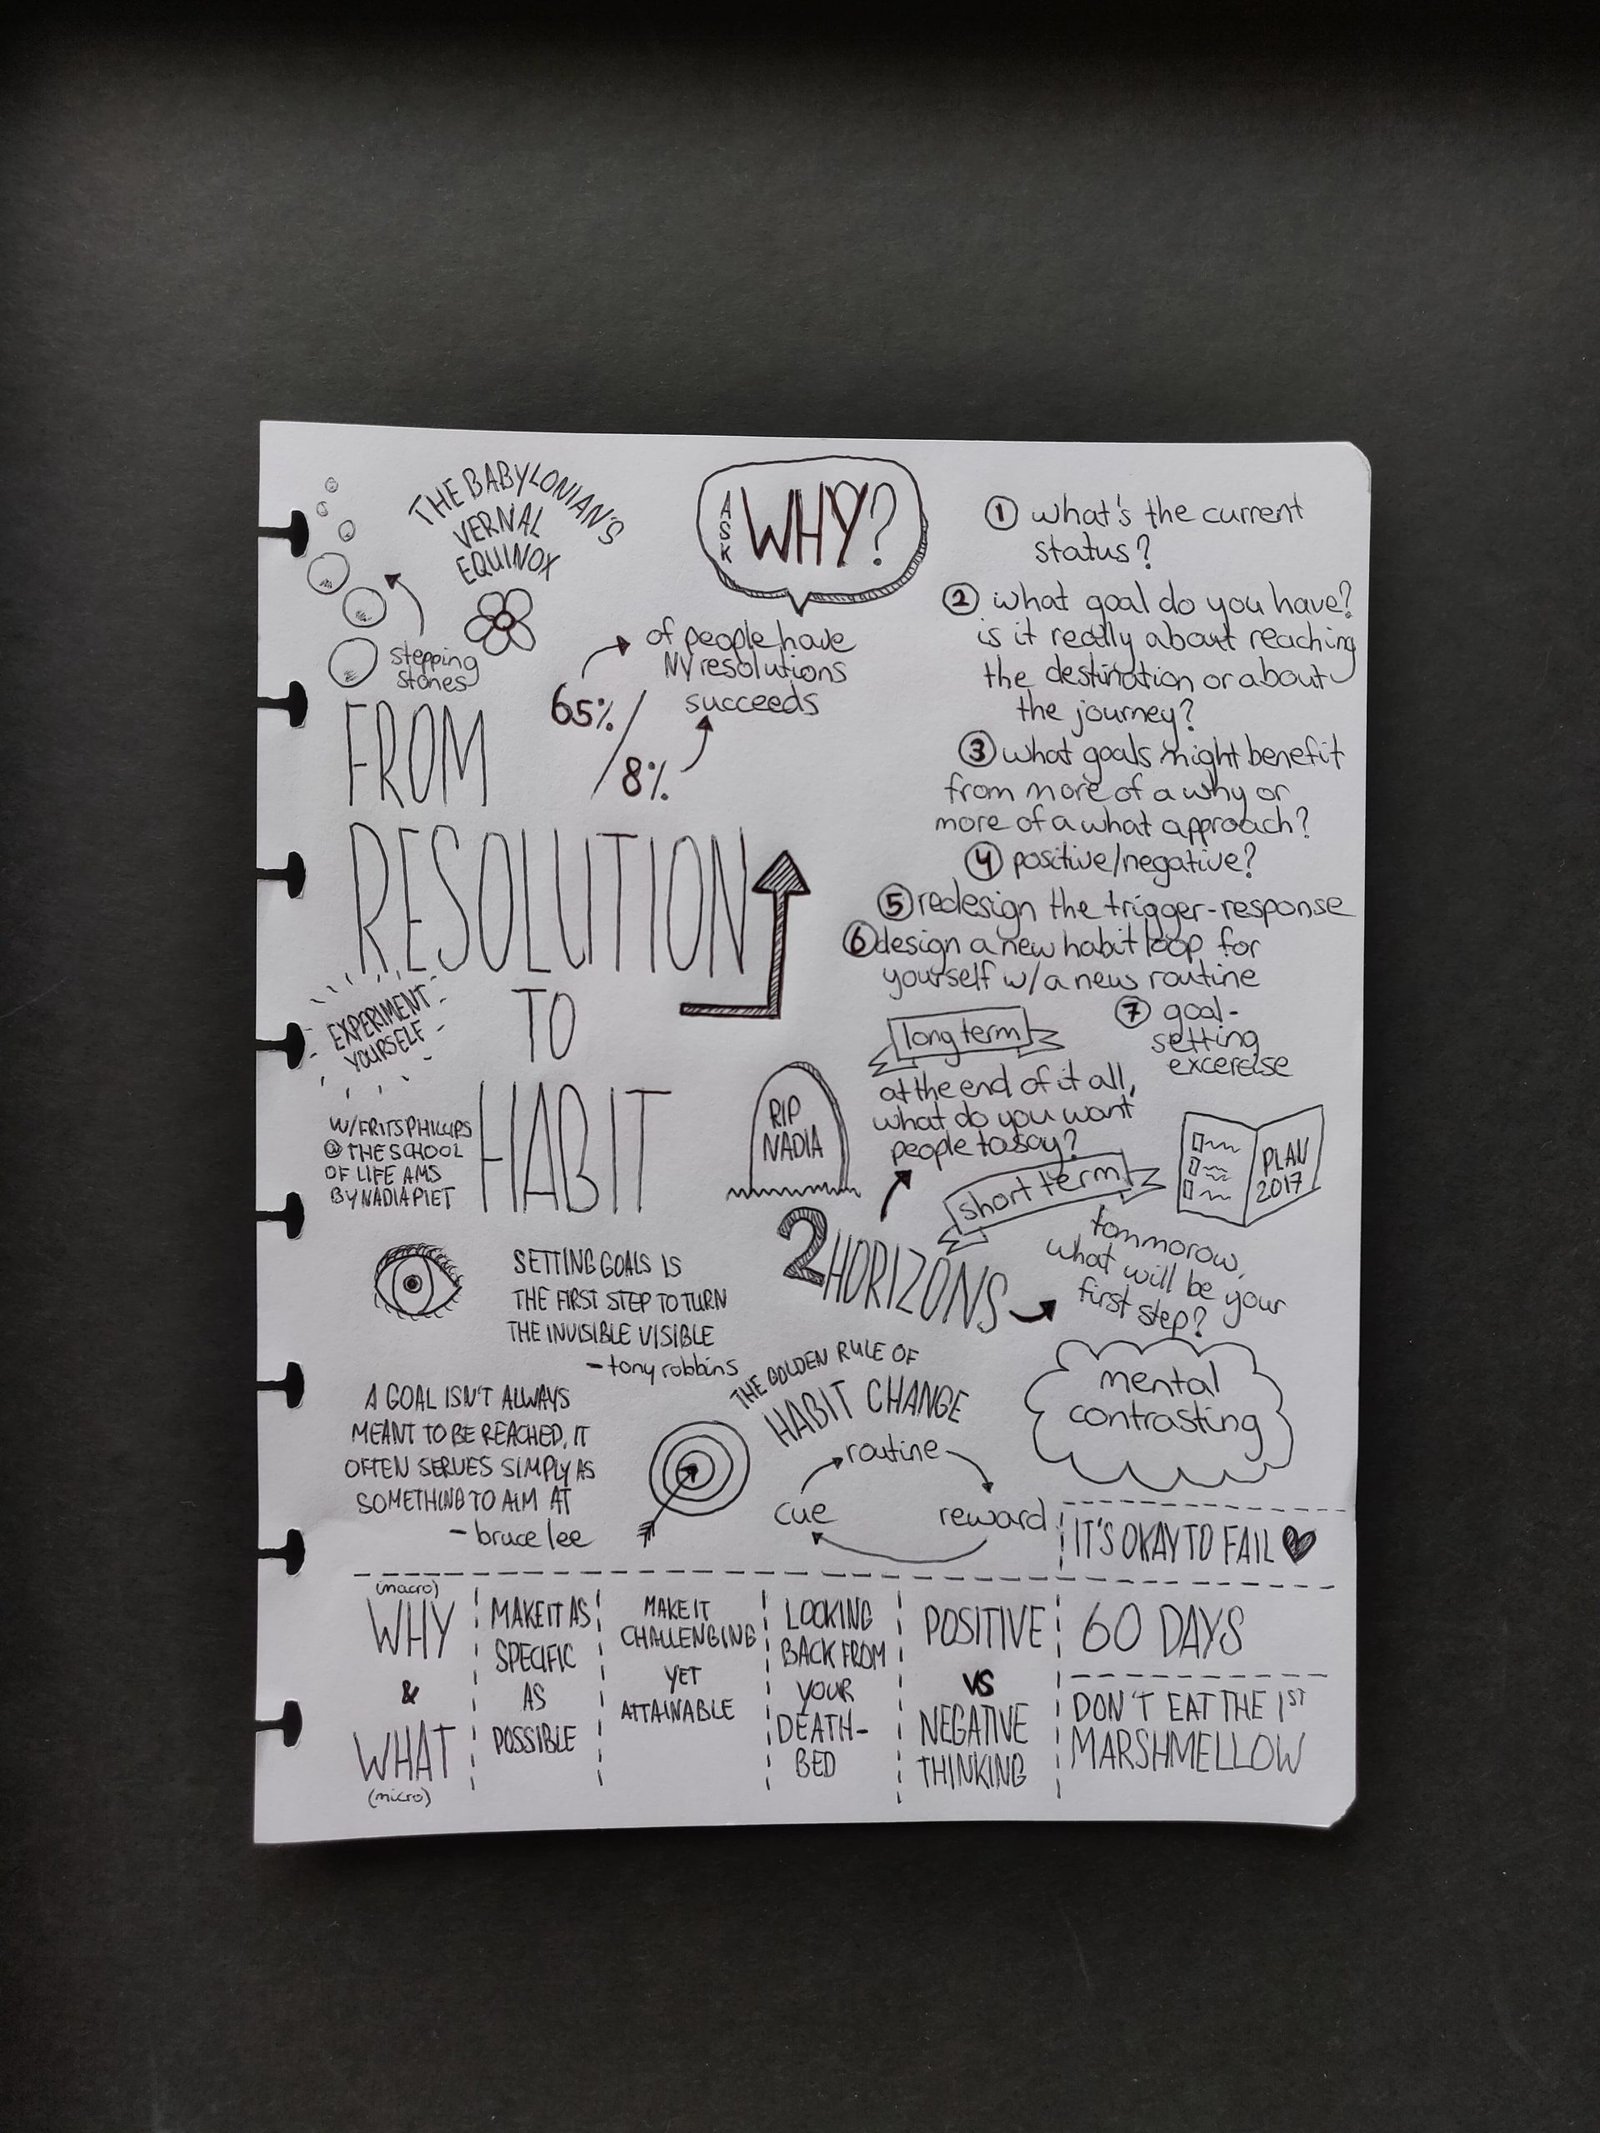 THE BABYLONIAN'S
VERNAL
EQUINOX
stepping
stones
ASK
WHY?
65% / 8%
of people have
NY resolutions
succeeds
FROM
RESOLUTION
TO
HABIT
EXPERIMENT
YOURSELF
W/FRITS PHILLIPS
@ THE SCHOOL
OF LIFE AMS
BY NADIA PIET
① what's the current
status?
② what goal do you have?
is it really about reaching
the destination or about
the journey?
③ what goals might benefit
from more of a why or
more of a what approach?
④ positive/negative?
⑤ redesign the trigger-response
⑥ design a new habit loop for
yourself w/a new routine
⑦ goal-
setting
excercise
long term
at the end of it all,
what do you want
people to say?
RIP
NADIA
2 HORIZONS
short term
tommorow,
what will be your
first step?
PLAN
2017
SETTING GOALS IS
THE FIRST STEP TO TURN
THE INVISIBLE VISIBLE
- tony robbins
A GOAL ISN'T ALWAYS
MEANT TO BE REACHED, IT
OFTEN SERVES SIMPLY AS
SOMETHING TO AIM AT
- bruce lee
THE GOLDEN RULE OF
HABIT CHANGE
routine
cue
reward
mental
contrasting
IT'S OKAY TO FAIL
(macro)
WHY
&
WHAT
(micro)
MAKE IT AS
SPECIFIC
AS
POSSIBLE
MAKE IT
CHALLENGING
YET
ATTAINABLE
LOOKING
BACK FROM
YOUR
DEATH-
BED
POSITIVE
VS
NEGATIVE
THINKING
60 DAYS
DON'T EAT THE 1ST
MARSHMELLOW